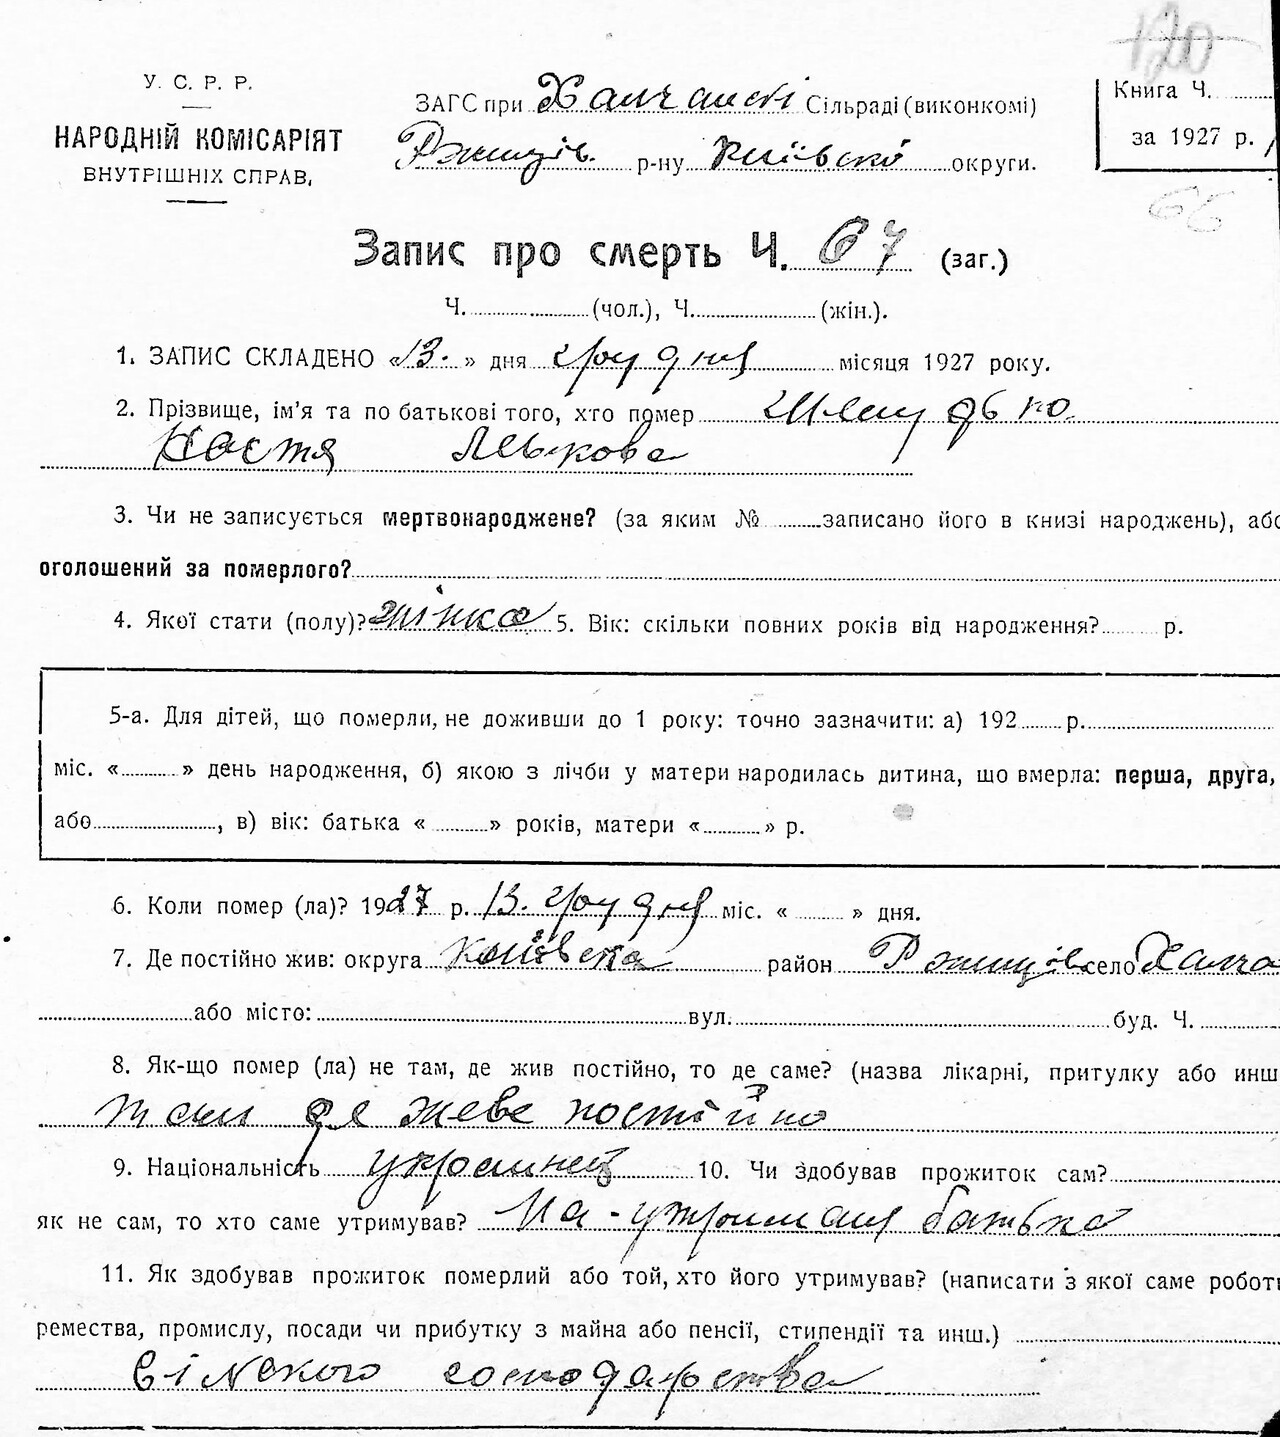 120
У. С. Р. Р.
НАРОДНІЙ КОМІСАРІЯТ
ВНУТРІШНІХ СПРАВ,
ЗАГС при Халчанскі Сільраді (виконкомі)
Ржищів. р-ну Київскі округи.
Книга Ч.
за 1927 р.
66
Запис про смерть Ч. 67 (заг.)
Ч. (чол.), Ч. (жін.).
1. ЗАПИС СКЛАДЕНО «13.» дня грудня місяця 1927 року.
2. Прізвище, ім'я та по батькові того, хто помер
Настя
3. Чи не записується мертвонароджене? (за яким № записано його в книзі народжень), або
оголошений за померлого?
4. Якої стати (полу)? жінка 5. Вік: скільки повних років від народження? р.
5-а. Для дітей, що померли, не доживши до 1 року: точно зазначити: а) 192 р.
міс. « » день народження, б) якою з лічби у матери народилась дитина, що вмерла: перша, друга,
або , в) вік: батька « » років, матери « » р.
6. Коли помер (ла)? 1927 р. 13. грудня міс. « » дня.
7. Де постійно жив: округа Київска район Ржищів село Халча
або місто: вул. буд. Ч.
8. Як-що помер (ла) не там, де жив постійно, то де саме? (назва лікарні, притулку або инш
там де живе постійно
9. Національність украинец 10. Чи здобував прожиток сам?
як не сам, то хто саме утримував? На-утриманя батька
11. Як здобував прожиток померлий або той, хто його утримував? (написати з якої саме роботи
ремества, промислу, посади чи прибутку з майна або пенсії, стипендії та инш.)
сілского господарства